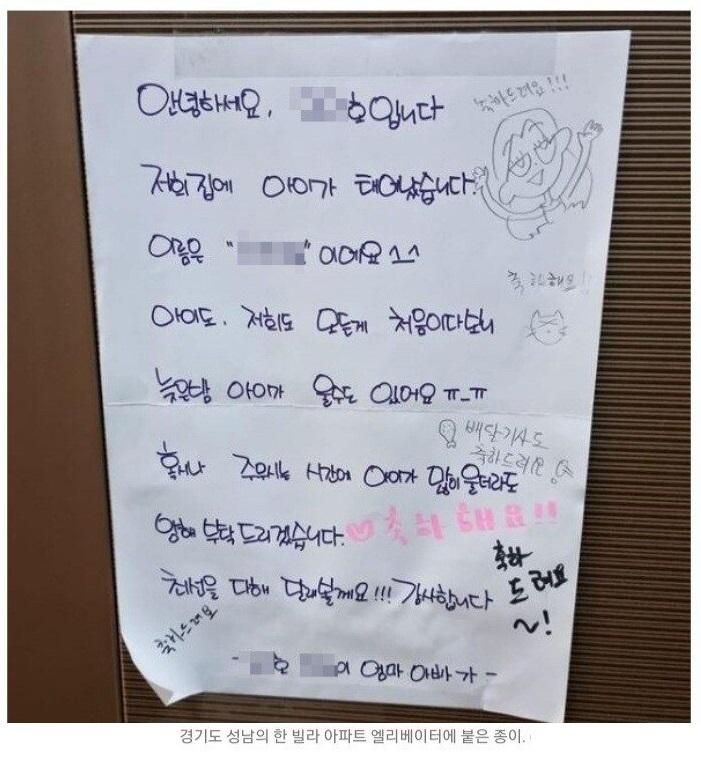 안녕하세요. 호입니다
축하드려요!!!
저희집에 아이가 태어났습니다.
이름은 " "이에요^^
축하해요!!
아이도. 저희도 모든게 처음이다보니
늦은밤 아이가 울수도 있어요 ㅠ_ㅠ
배달기사도
축하드려요
혹시나 주무시는 시간에 아이가 많이 울더라도
양해 부탁드리겠습니다.
♡축하해요!!
최선을 다해 달래볼게요!!! 감사합니다
축하
드려요
~!
축하드려요
- 호 이 엄마 아빠가 -
경기도 성남의 한 빌라 아파트 엘리베이터에 붙은 종이.